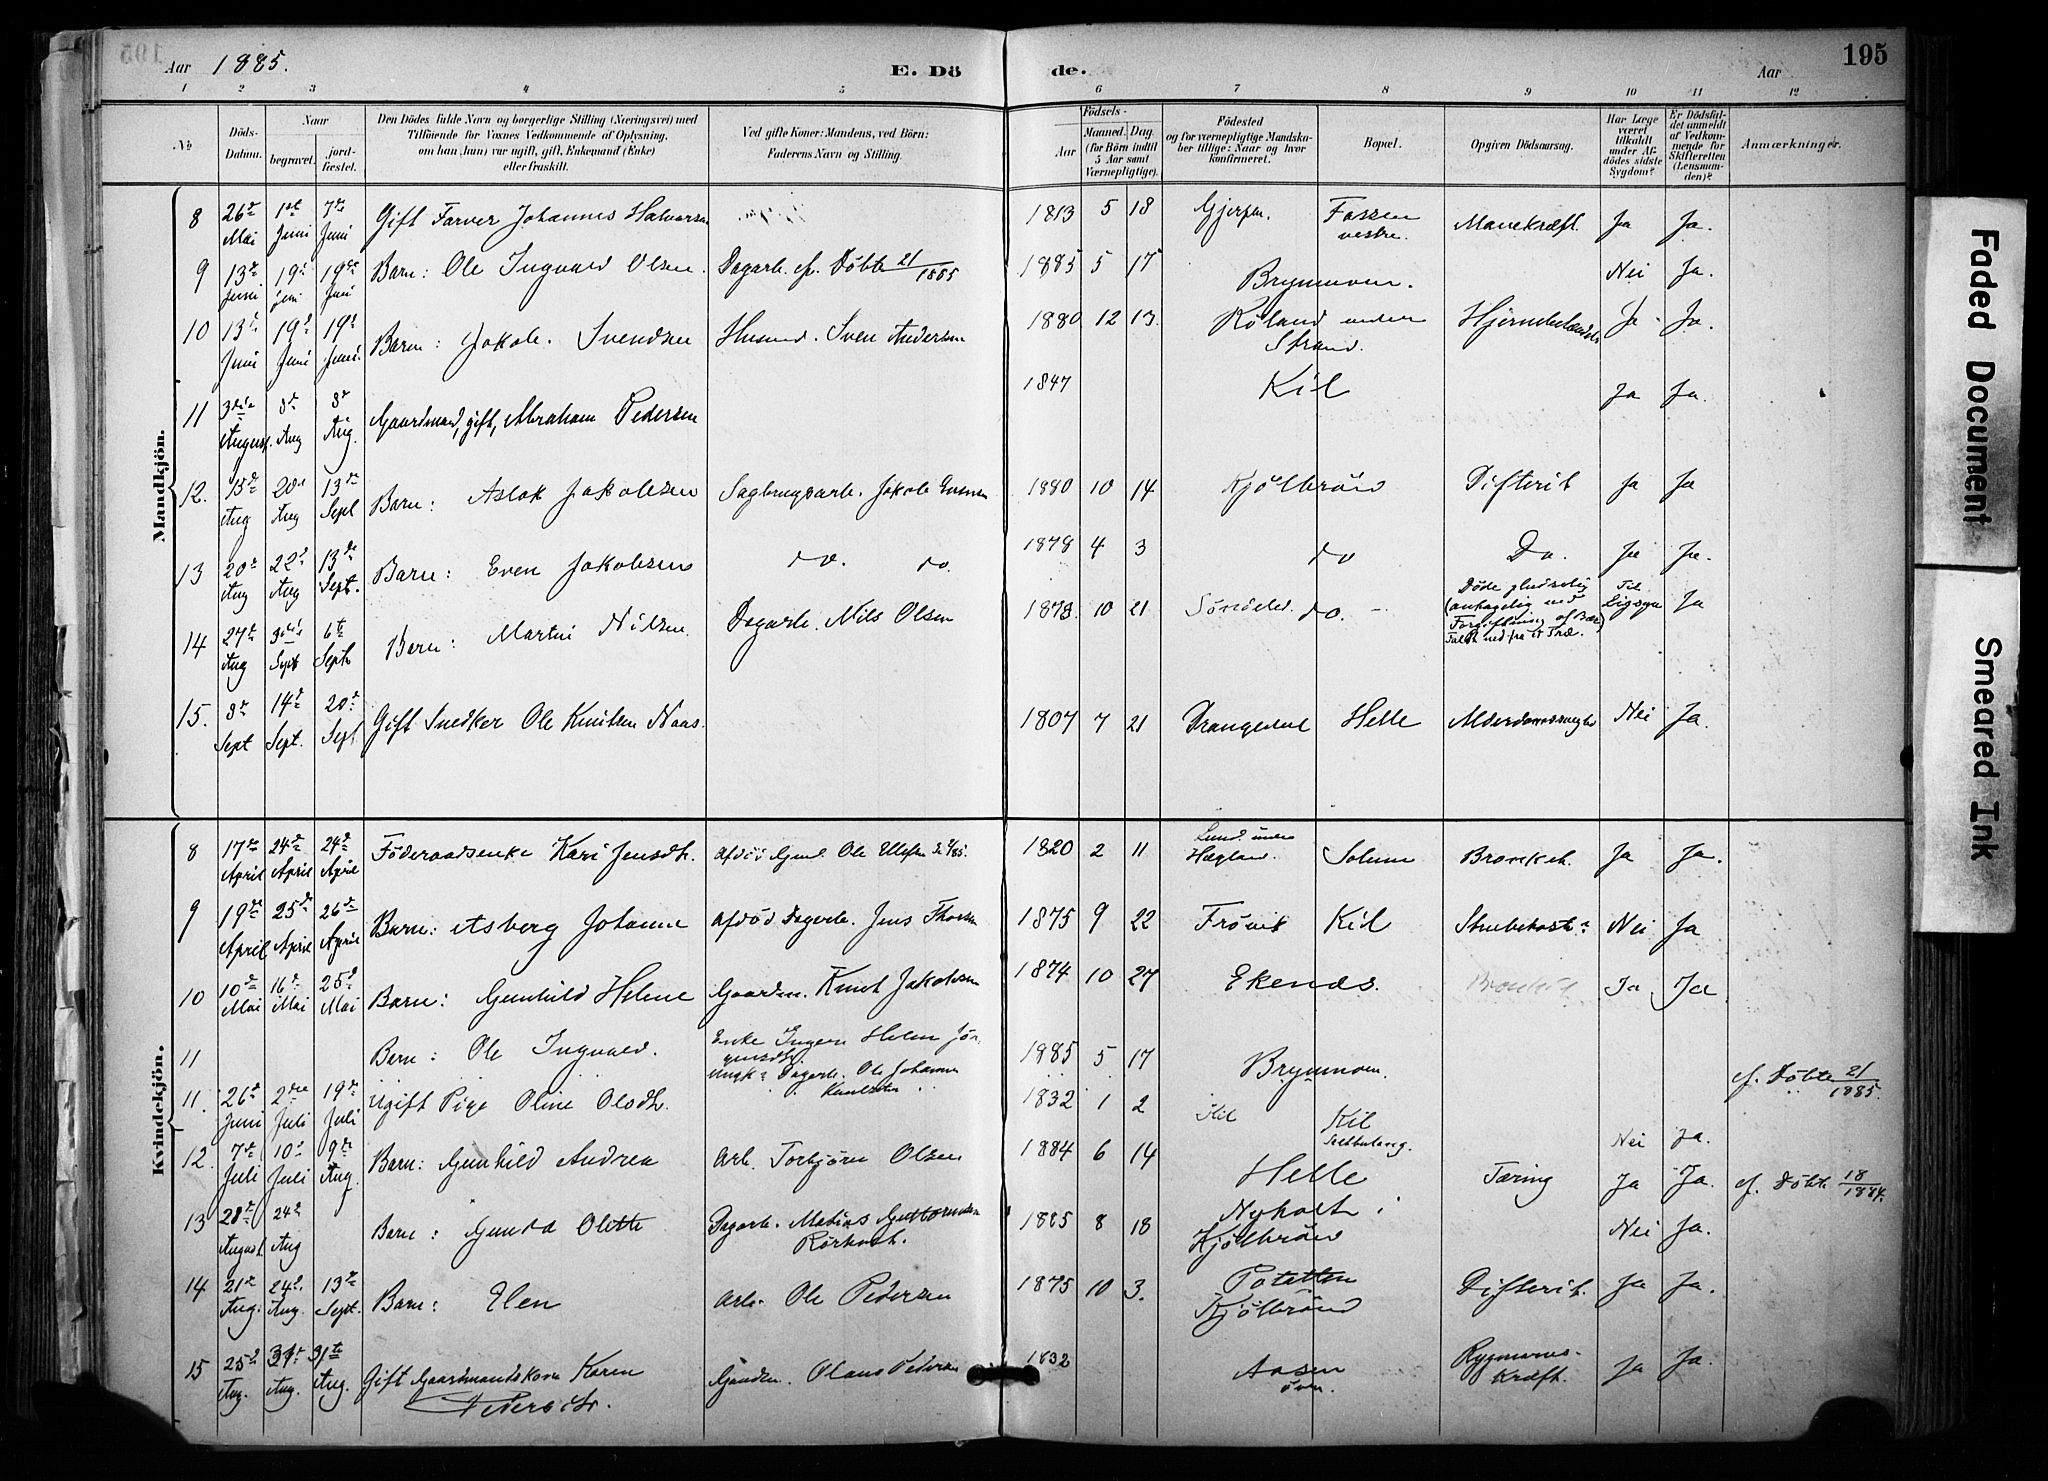 Aar 1885. E. Dö de. Aar 195
1 2 3 4 5 6 7 8 9 10 11 12
No
Döds-Datum.
Naar
begravet.
jord-fæstet.
Den Dödes fulde Navn og borgerlige Stilling (Næringsvei) med
Tilföiende for Voxnes Vedkommende af Oplysning,
om han (hun) var ugift, gift, Enkemand (Enke)
eller fraskilt.
Ved gifte Koner: Mandens, ved Börn:
Faderens Navn og Stilling.
Födsels-
Aar
Maaned. Dag.
(for Börn indtil
5 Aar samt
Værnepligtige).
Födested
og for værnepligtige Mandska-
ber tillige: Naar og hvor
konfirmeret.
Bopæl.
Opgiven Dödsaarsag.
Har Læge
været
tilkaldt
under Af-
dödes sidste
Sygdom?
Er Dödsfal-
det anmeldt
af Vedkom-
mende for
Skifteretten
(Lensman-
den)?
Anmærkninger.
Mandkjön.
8 26de Mai 1ste Juni 7de Juni Gift Farver Johannes Halvorsen 1813 5 18 Gjerpen. Fossen vestre. Mavekræft. Ja Ja.
9 13de Juni 19de Juni 19de Juni Barn: Ole Ingvald Olsen. Dagarb. cf. Döbte 21/1885 1885 5 17 Brynmoen. Nei Ja.
10 13de Juni 19de Juni 19de Juni. Barn: Jakob. Svendsen Husmd. Sven Andersen 1880 12 13. Röland under Strand. Ja Ja.
11 3die August. 8de Aug 8de Aug. Gaardmand, gift, Abraham Pedersen 1847 Kil Ja Ja.
12. 15de Aug 20de Aug 13de Sept Barn: Aslak Jakobsen Sagbrugsarb. Jakob Evensen 1880 10 14 Kjölbrönd Difterit Ja Ja
13 20de Aug 22de Aug 13de Sept. Barn: Even Jakobsen do. do. 1878 4 3 do Do. Ja Ja.
14 27de Aug 3die Sept 6te Sept Barn: Martin Nilsen. Dagarb. Nils Olsen 1873. 10 21 Söndeled. do. Döde pludselig (antagelig ved Forgiftning af Bær) Faldt ned fra et Træ. Til Ligsyn Ja
15. 8de Sept 14de Sept. 20de Sept Gift Snedker Ole Knutsen Naas. 1807 7 21 Drangedal Helle Alderdomssvaghed Nei Ja.
Kvindekjön.
8 17de April 24de April 24de April Föderaadsenke Kari Jensdtr. Afdöd Gmd. Ole Ellefsen 1820 2 11 Lund under Hægland. Solum Bronkit. Ja Ja.
9 19de April 25de April 26de April Barn: Asberg Johanne Afdöd Dagarb. Jens Thorsen 1875 9 22 Frövik Kil Strubehoste Nei Ja
10 10de Mai 16de Mai 25de Mai Barn: Gunhild Helene Gaardm. Knut Jakobsen 1874 10 27 Ekenæs. Bronkit Ja Ja
11 Barn: Ole Ingvald. Enke Ingen Helen Jörgensdtr. Ungk. Dagarb. Ole Johannes Knutsen 1885 5 17 Brynmoen. cf. Döbte 21/1885.
11. 26de Juni 2den Juli 19de Juli Ugift Pige Oline Olsdtr. 1832 1 2 Kil Kil Nei Ja.
12. 7de Juli 10de Juli 9de Aug. Barn: Gunhild Andrea Arb. Torbjörn Olsen 1884 6 14 Helle Tæring Ja Ja. cf. Döbte 18/1884.
13 28de August. 24de Aug Barn: Gunda Olette Dagarb. Matias Guttormsen Rörholt. 1885 8 18 Nyholt i Kjölbrönd Nei Ja.
14 21de Aug. 24de Aug. 13de Sept. Barn: Elen Arb. Ole Pedersen 1875 10 3. Potetten Kjölbrönd Difterit. Ja Ja.
15 25de Aug. 31te Aug. 31te Aug. Gift Gaardmandskone Karen Pedersdtr. Gaardm. Olaus Pedersen 1832 Aasen övre. Rygmarvs-Kræft. Ja Ja.
Faded Document
Smeared Ink